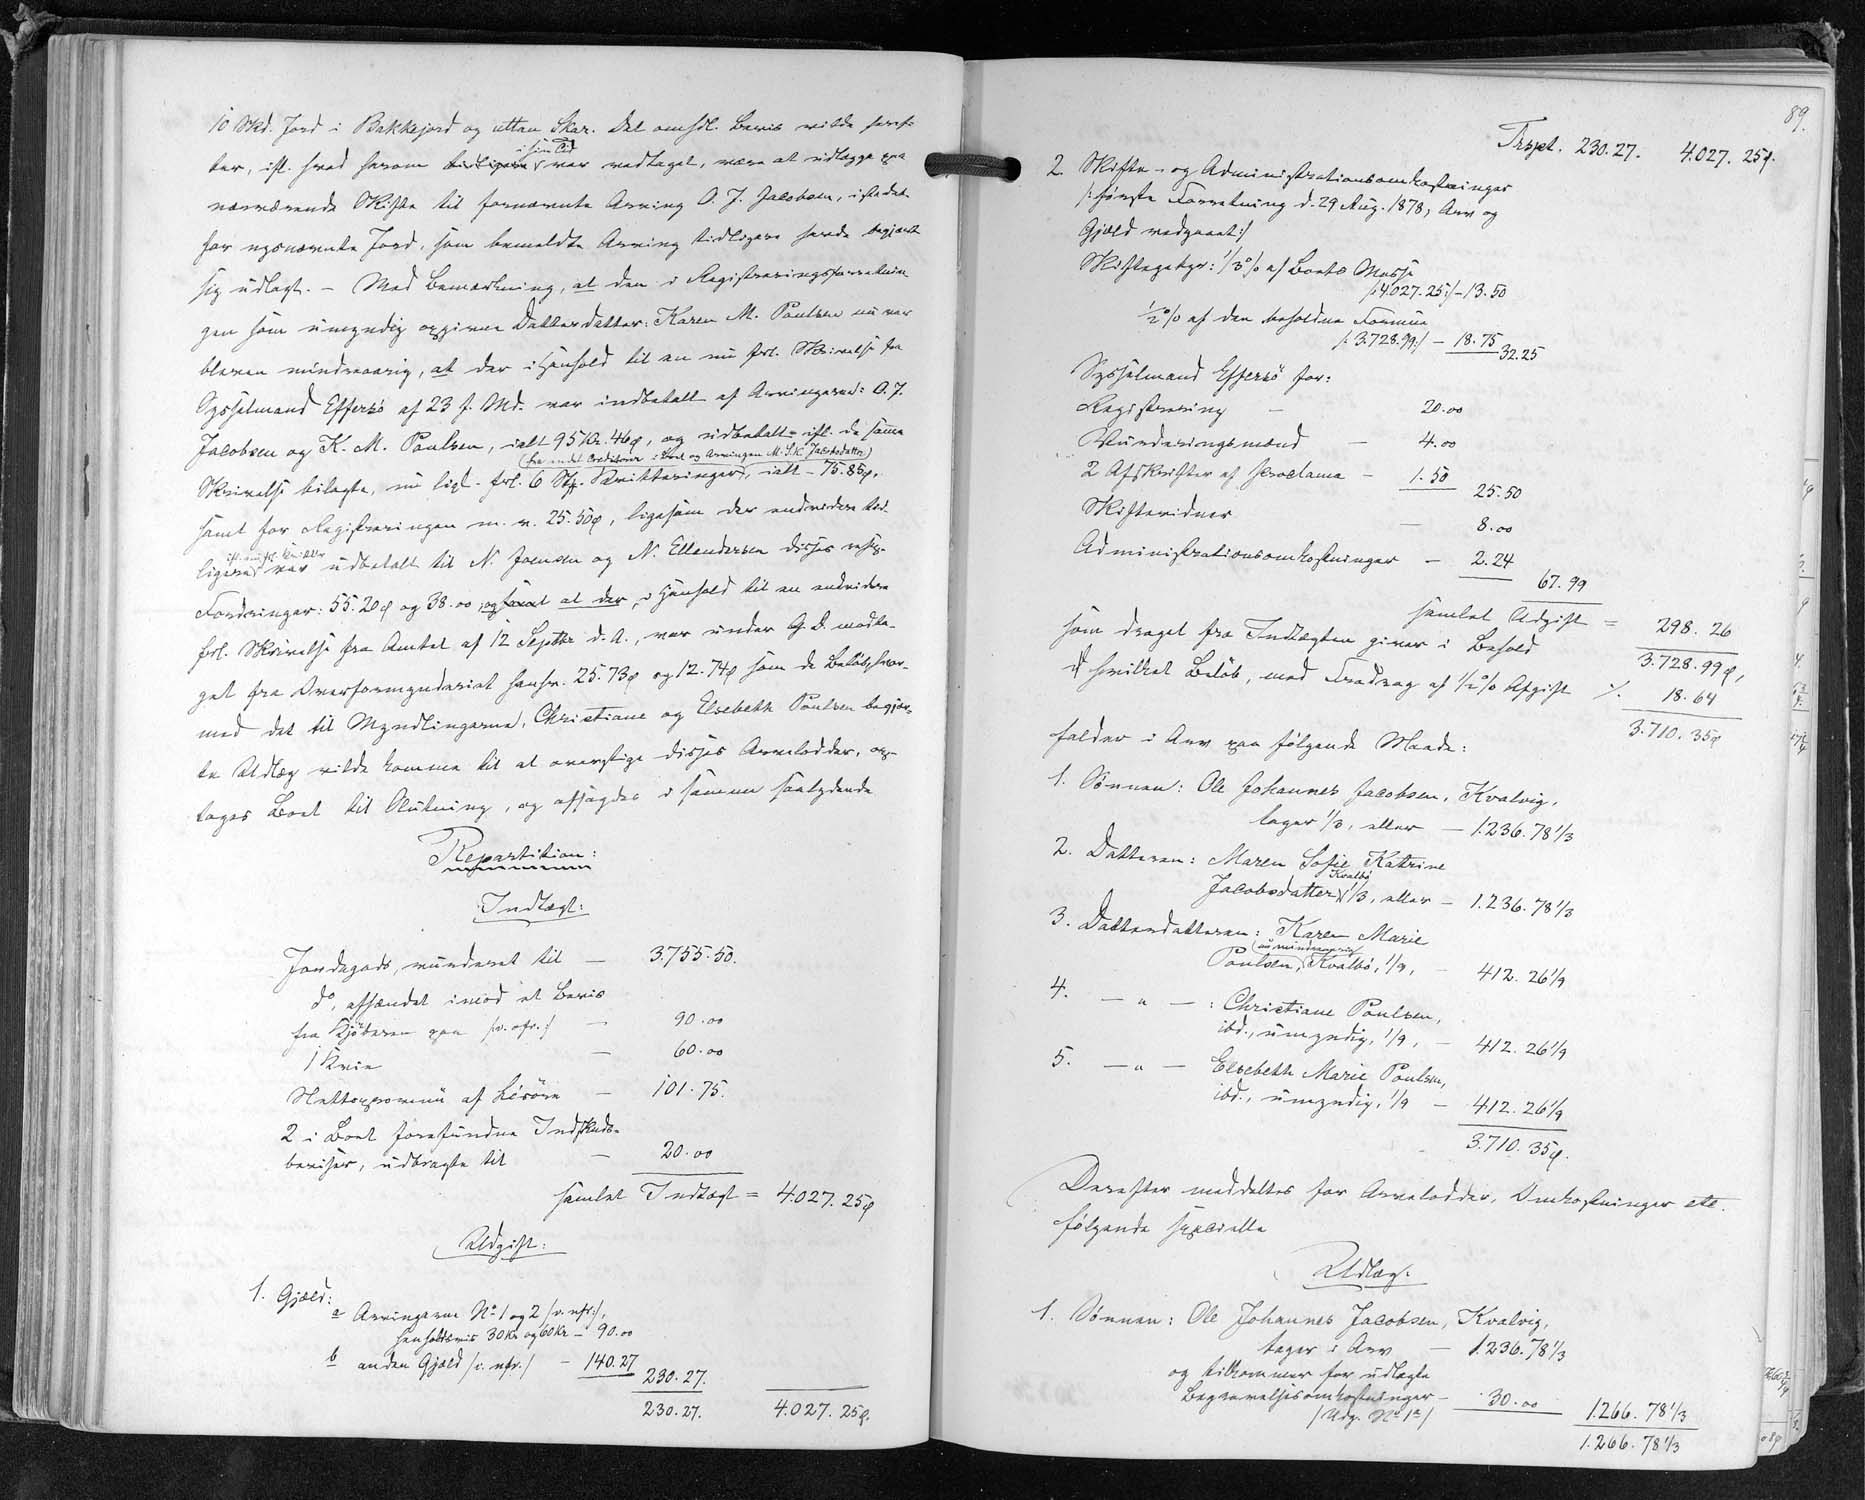 10 Skd. Jord i Bakkejord og uttan Skar. Det omhdl. Bevis vilde heref-
ter, ifl. hvad herom tidligere var vedtaget, være at udlægge paa
i sin Tid
nærværende Skifte til fornævnte Arving O. J. Jacobsen, istedet
for opnævnte Jord, som bemeldte Arving tidligere havde begjært
sig udlagt. – Med Bemærkning, at den i Registreringsforretnin
gen som umyndig opgivne Datterdatter: Karen M. Poulsen nu var
bleven mindreaarig, at der i Henhold til en nu frl. Skrivelse fra
Sysselmand Effersø af 23 f. Md. var indbetalt af Arvingerne: O. J.
Jacobsen og K. M. Poulsen, ialt 95 Kr. 46 ø, og udbetalt ifl. de samme
(fra andet Creditorer i Boet og Arvingen M. S. K. Jacobsdatter)
Skrivelse bilagte, nu ligl. frl. 6 Stk. Kvitteringer, ialt – 75.85 ø,
samt for Registreringen m. v. 25.50 ø, ligesom der endvidere tid-
ifl. nu frl. Kvitter
ligere var udbetalt til N. Joensen og N. Ellendersen disses resp.
Fordringer: 55.20 ø og 38.00, og samt at der, i Henhold til en endvidere
frl. Skrivelse fra Amtet af 12 Septbr d. A., var under G. D. modta-
get fra Overformynderiet henhv. 25.73 ø og 12.74 ø som de Beløb, hvor-
med det til Myndlingerne, Christiane og Elsebeth Poulsen begjær-
te Udlæg vilde komme til at overstige disses Arvelodder, op-
toges Boet til Slutning, og afsagdes i samme saalydende
Repartition:
Indtægt:
Jordegods, vurderet til – 3.755.50.
do, afhændet imod et Bevis
fra Kjøberen paa /: v. ofr. :/ – 90.00
1 Kvie – 60.00
Nettoprovenü af Løsøre – 101.75.
2 i Boet forefundne Indskuds-
beviser, udbragte til – 20.00
samlet Indtægt = 4.027.25 ø
Udgift:
1. Gjæld:
a Arvingerne No 1 og 2 /: v. nfr :/,
henholdsvis 30 Kr og 60 Kr – 90.00
b anden Gjæld /: v. nfr. :/ – 140.27
230.27.
230.27. 4.027.25 ø.
89.
Trspt. 230.27. 4.027.25 ø.
2. Skifte- og Administrationsomkostninger
/: første Forretning d. 29 Aug. 1878, Arv og
Gjæld vedgaaet :/
Skiftegebyr: 1/3 % af Boets Masse
/: 4.027.25 :/ – 13.50
1/2 % af den beholdne Formue
/: 3.728.99 :/ – 18.75
32.25
Sysselmand Effersø for:
Registrering – 20.00
Vurderingsmænd – 4.00
2 Afskrifter af Proclama – 1.50
25.50
Skiftevidner – 8.00
Administrationsomkostninger – 2.24
67.99
samlet Udgift = 298.26
som draget fra Indtægten giver i Behold 3.728.99 ø,
hvilket Beløb, med Fradrag af 1/2 % Afgift ./. 18.64
3.710.35 ø
falder i Arv paa følgende Maade:
1. Sønnen: Ole Johannes Jacobsen, Kvalvig,
tager 1/3, eller – 1.236.78 1/3
2. Datteren: Maren Sofie Katrine
Kvalbø
Jacobsdatter, 1/3, eller – 1.236.78 1/3
3. Datterdatteren: Karen Marie
(nu mindreaarig)
Poulsen, Kvalbø, 1/9, – 412.26 1/9
4. – " – : Christiane Poulsen,
ibd., umyndig, 1/9, – 412.26 1/9
5. – " – Elsebeth Marie Poulsen,
ibd., umyndig, 1/9 – 412.26 1/9
3.710.35 ø.
Derefter meddeltes for Arvelodder, Omkostninger etc.
følgende specielle
Udlæg:
1. Sønnen: Ole Johannes Jacobsen, Kvalvig,
tager i Arv – 1.236.78 1/3
og tilkommer for udlagte
Begravelsesomkostninger – 30.00
/: Udg. No 1a :/
1.266.78 1/3
1.266.78 1/3